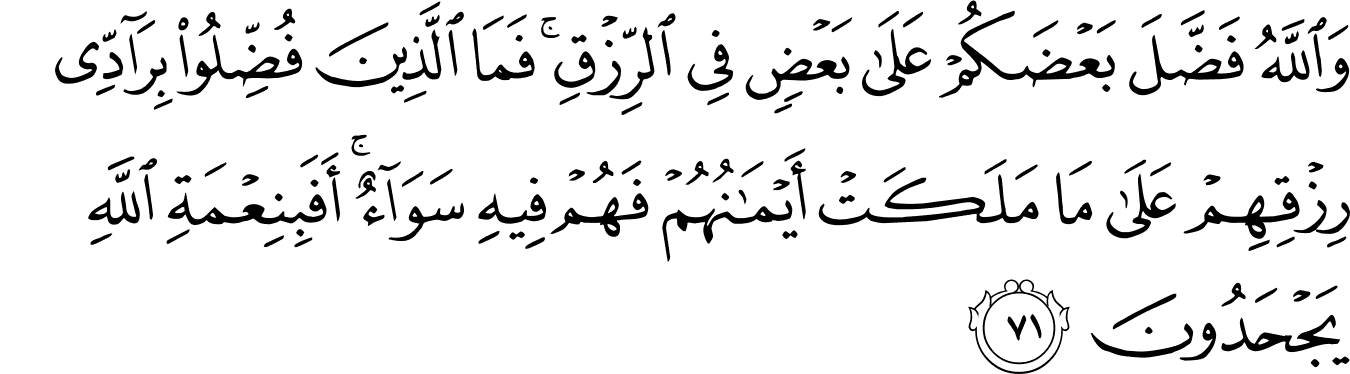 وَٱللَّهُ فَضَّلَ بَعْضَكُمْ عَلَىٰ بَعْضٍ فِى ٱلرِّزْقِ ۚ فَمَا ٱلَّذِينَ فُضِّلُوا۟ بِرَآدِّى
رِزْقِهِمْ عَلَىٰ مَا مَلَكَتْ أَيْمَـٰنُهُمْ فَهُمْ فِيهِ سَوَآءٌ ۚ أَفَبِنِعْمَةِ ٱللَّهِ
يَجْحَدُونَ ٧١